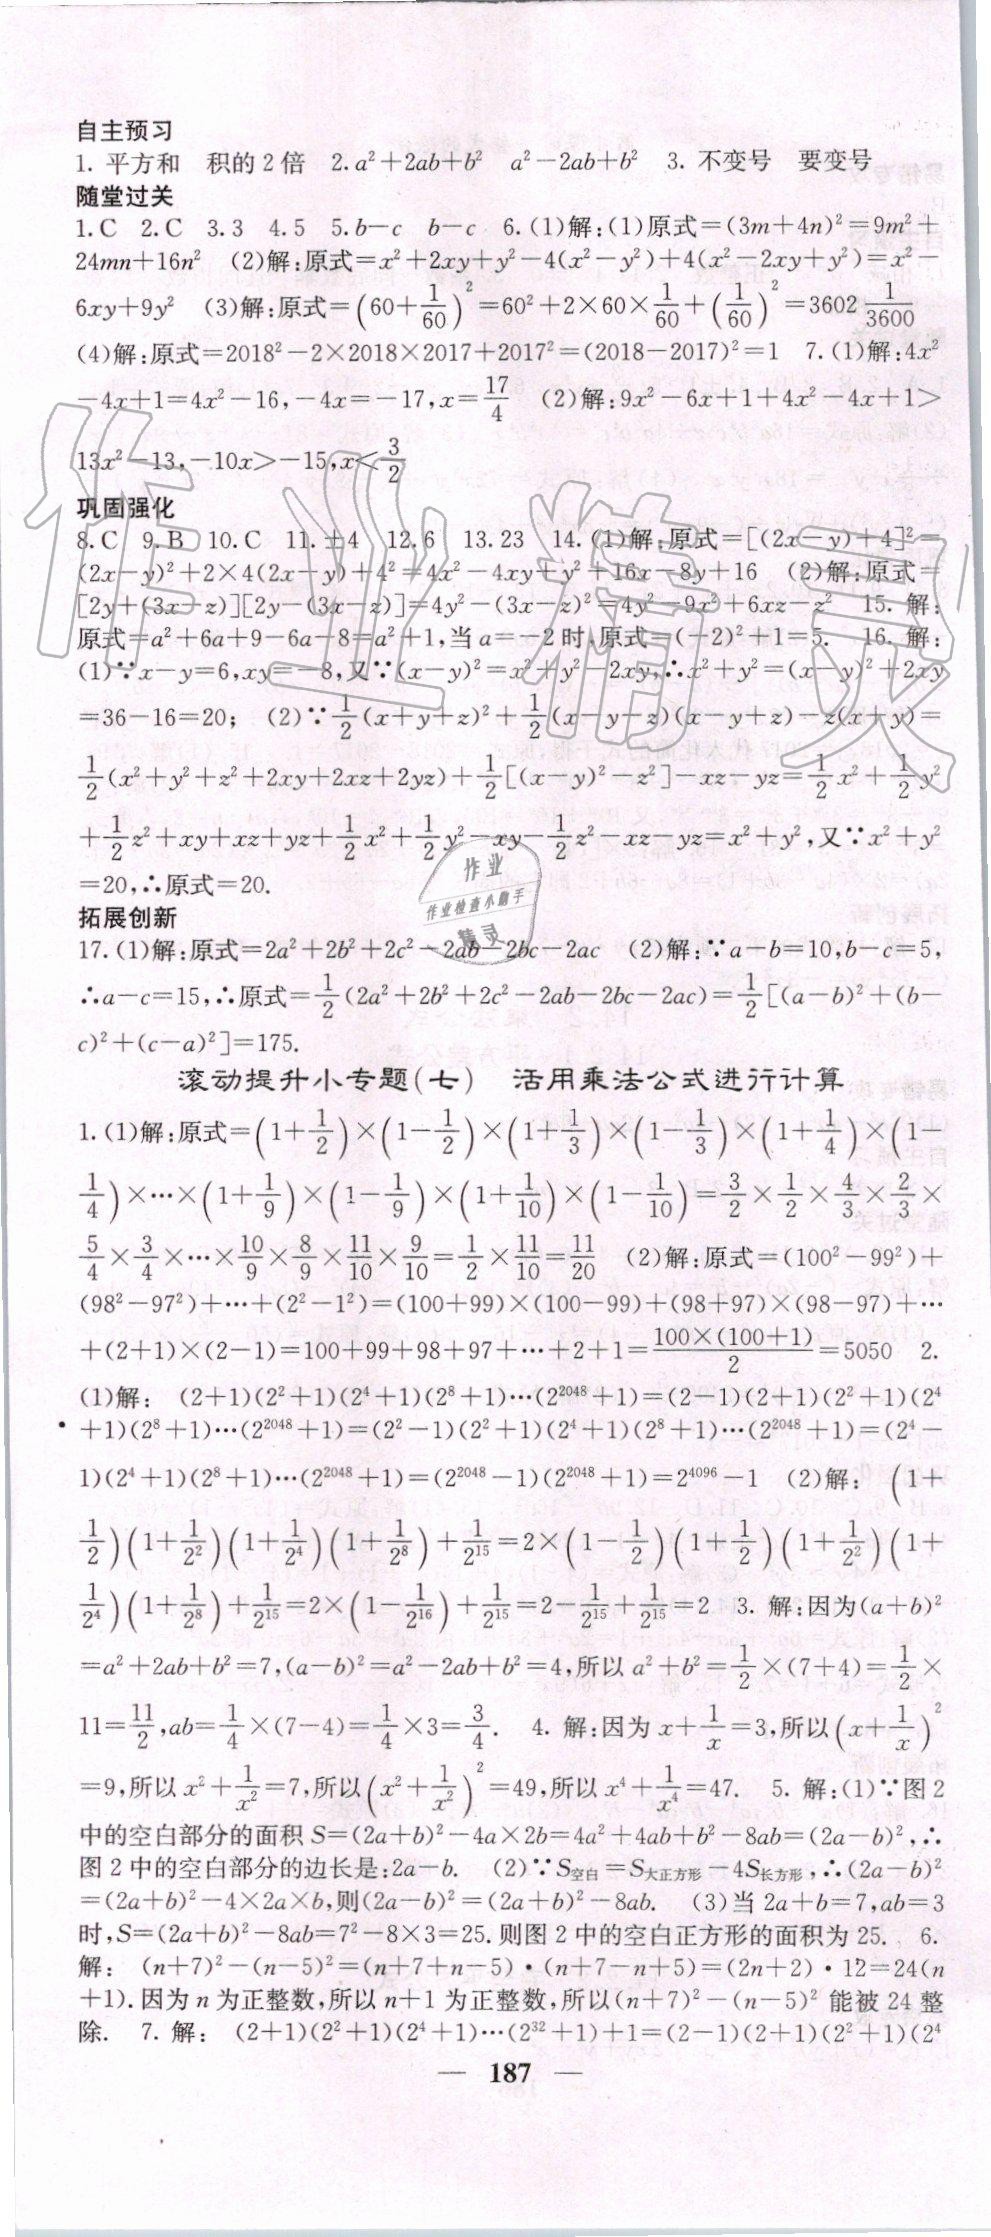 自主预习
1. 平方和 积的2倍 2.a²+2ab+b² a²-2ab+b² 3. 不变号 要变号
随堂过关
1.C 2.C 3.3 4.5 5.b-c b-c 6.(1)解:(1)原式=(3m+4n)²=9m²+
24mn+16n² (2)解:原式=x²+2xy+y²-4(x²-y²)+4(x²-2xy+y²)=x²-
6xy+9y² (3)解:原式=(60+1/60)²=60²+2×60×1/60+(1/60)²=3602 1/3600
(4)解:原式=2018²-2×2018×2017+2017²=(2018-2017)²=1 7.(1)解:4x²
-4x+1=4x²-16,-4x=-17,x=17/4 (2)解:9x²-6x+1+4x²-4x+1>
13x²-13,-10x>-15,x<3/2
巩固强化
8.C 9.B 10.C 11.±4 12.6 13.23 14.(1)解:原式=[(2x-y)+4]²=
(2x-y)²+2×4(2x-y)+4²=4x²-4xy+y²+16x-8y+16 (2)解:原式=
[2y+(3x-z)][2y-(3x-z)]=4y²-(3x-z)²=4y²-9x²+6xz-z² 15. 解:
原式=a²+6a+9-6a-8=a²+1,当a=-2时,原式=(-2)²+1=5. 16. 解:
(1)∵x-y=6,xy=-8,又∵(x-y)²=x²+y²-2xy,∴x²+y²=(x-y)²+2xy
=36-16=20; (2)∵1/2(x+y+z)²+1/2(x-y-z)(x-y+z)-z(x+y)=
1/2(x²+y²+z²+2xy+2xz+2yz)+1/2[(x-y)²-z²]-xz-yz=1/2x²+1/2y²
+1/2z²+xy+xz+yz+1/2x²+1/2y²-xy-1/2z²-xz-yz=x²+y²,又∵x²+y²
=20,∴原式=20.
拓展创新
17.(1)解:原式=2a²+2b²+2c²-2ab-2bc-2ac (2)解:∵a-b=10,b-c=5,
∴a-c=15,∴原式=1/2(2a²+2b²+2c²-2ab-2bc-2ac)=1/2[(a-b)²+(b-
c)²+(c-a)²]=175.
滚动提升小专题(七) 活用乘法公式进行计算
1.(1)解:原式=(1+1/2)×(1-1/2)×(1+1/3)×(1-1/3)×(1+1/4)×(1-
1/4)×…×(1+1/9)×(1-1/9)×(1+1/10)×(1-1/10)=3/2×1/2×4/3×2/3×
5/4×3/4×…×10/9×8/9×11/10×9/10=1/2×11/10=11/20 (2)解:原式=(100²-99²)+
(98²-97²)+…+(2²-1²)=(100+99)×(100-99)+(98+97)×(98-97)+…
+(2+1)×(2-1)=100+99+98+97+…+2+1=100×(100+1)/2=5050 2.
(1)解: (2+1)(2²+1)(2⁴+1)(2⁸+1)…(2²⁰⁴⁸+1)=(2-1)(2+1)(2²+1)(2⁴
+1)(2⁸+1)…(2²⁰⁴⁸+1)=(2²-1)(2²+1)(2⁴+1)(2⁸+1)…(2²⁰⁴⁸+1)=(2⁴-
1)(2⁴+1)(2⁸+1)…(2²⁰⁴⁸+1)=(2²⁰⁴⁸-1)(2²⁰⁴⁸+1)=2⁴⁰⁹⁶-1 (2)解: (1+
1/2)(1+1/2²)(1+1/2⁴)(1+1/2⁸)+1/2¹⁵=2×(1-1/2)(1+1/2)(1+1/2²)(1+
1/2⁴)(1+1/2⁸)+1/2¹⁵=2×(1-1/2¹⁶)+1/2¹⁵=2-1/2¹⁵+1/2¹⁵=2 3. 解:因为(a+b)²
=a²+2ab+b²=7,(a-b)²=a²-2ab+b²=4,所以a²+b²=1/2×(7+4)=1/2×
11=11/2,ab=1/4×(7-4)=1/4×3=3/4. 4. 解:因为x+1/x=3,所以(x+1/x)²
=9,所以x²+1/x²=7,所以(x²+1/x²)²=49,所以x⁴+1/x⁴=47. 5. 解:(1)∵图2
中的空白部分的面积S=(2a+b)²-4a×2b=4a²+4ab+b²-8ab=(2a-b)²,∴
图2中的空白部分的边长是:2a-b. (2)∵S空白=S大正方形-4S长方形,∴(2a-b)²
=(2a+b)²-4×2a×b,则(2a-b)²=(2a+b)²-8ab. (3)当2a+b=7,ab=3
时,S=(2a+b)²-8ab=7²-8×3=25.则图2中的空白正方形的面积为25. 6.
解: (n+7)²-(n-5)²=(n+7+n-5)·(n+7-n+5)=(2n+2)·12=24(n
+1).因为n为正整数,所以n+1为正整数,所以(n+7)²-(n-5)²能被24整
除. 7. 解: (2+1)(2²+1)(2⁴+1)…(2³²+1)+1=(2-1)(2+1)(2²+1)(2⁴
— 187 —
作业精灵
作业
作业检查小助手
精灵